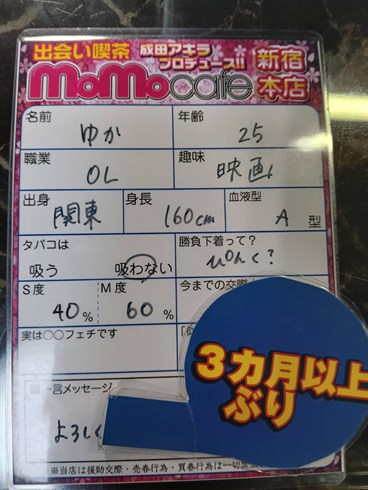 出会い喫茶 成田アキラ
プロデュース!!
MoMocafe
新宿
本店
名前
ゆか
年齢
25
職業
OL
趣味
映画
出身
関東
身長
160cm
血液型
A 型
タバコは
吸う 吸わない
勝負下着って?
ぴんく?
S度
40%
M度
60%
今までの交際
実は○○フェチです
3カ月以上
ぶり
一言メッセージ
よろしく
※当店は援助交際・売春行為・買春行為は一切